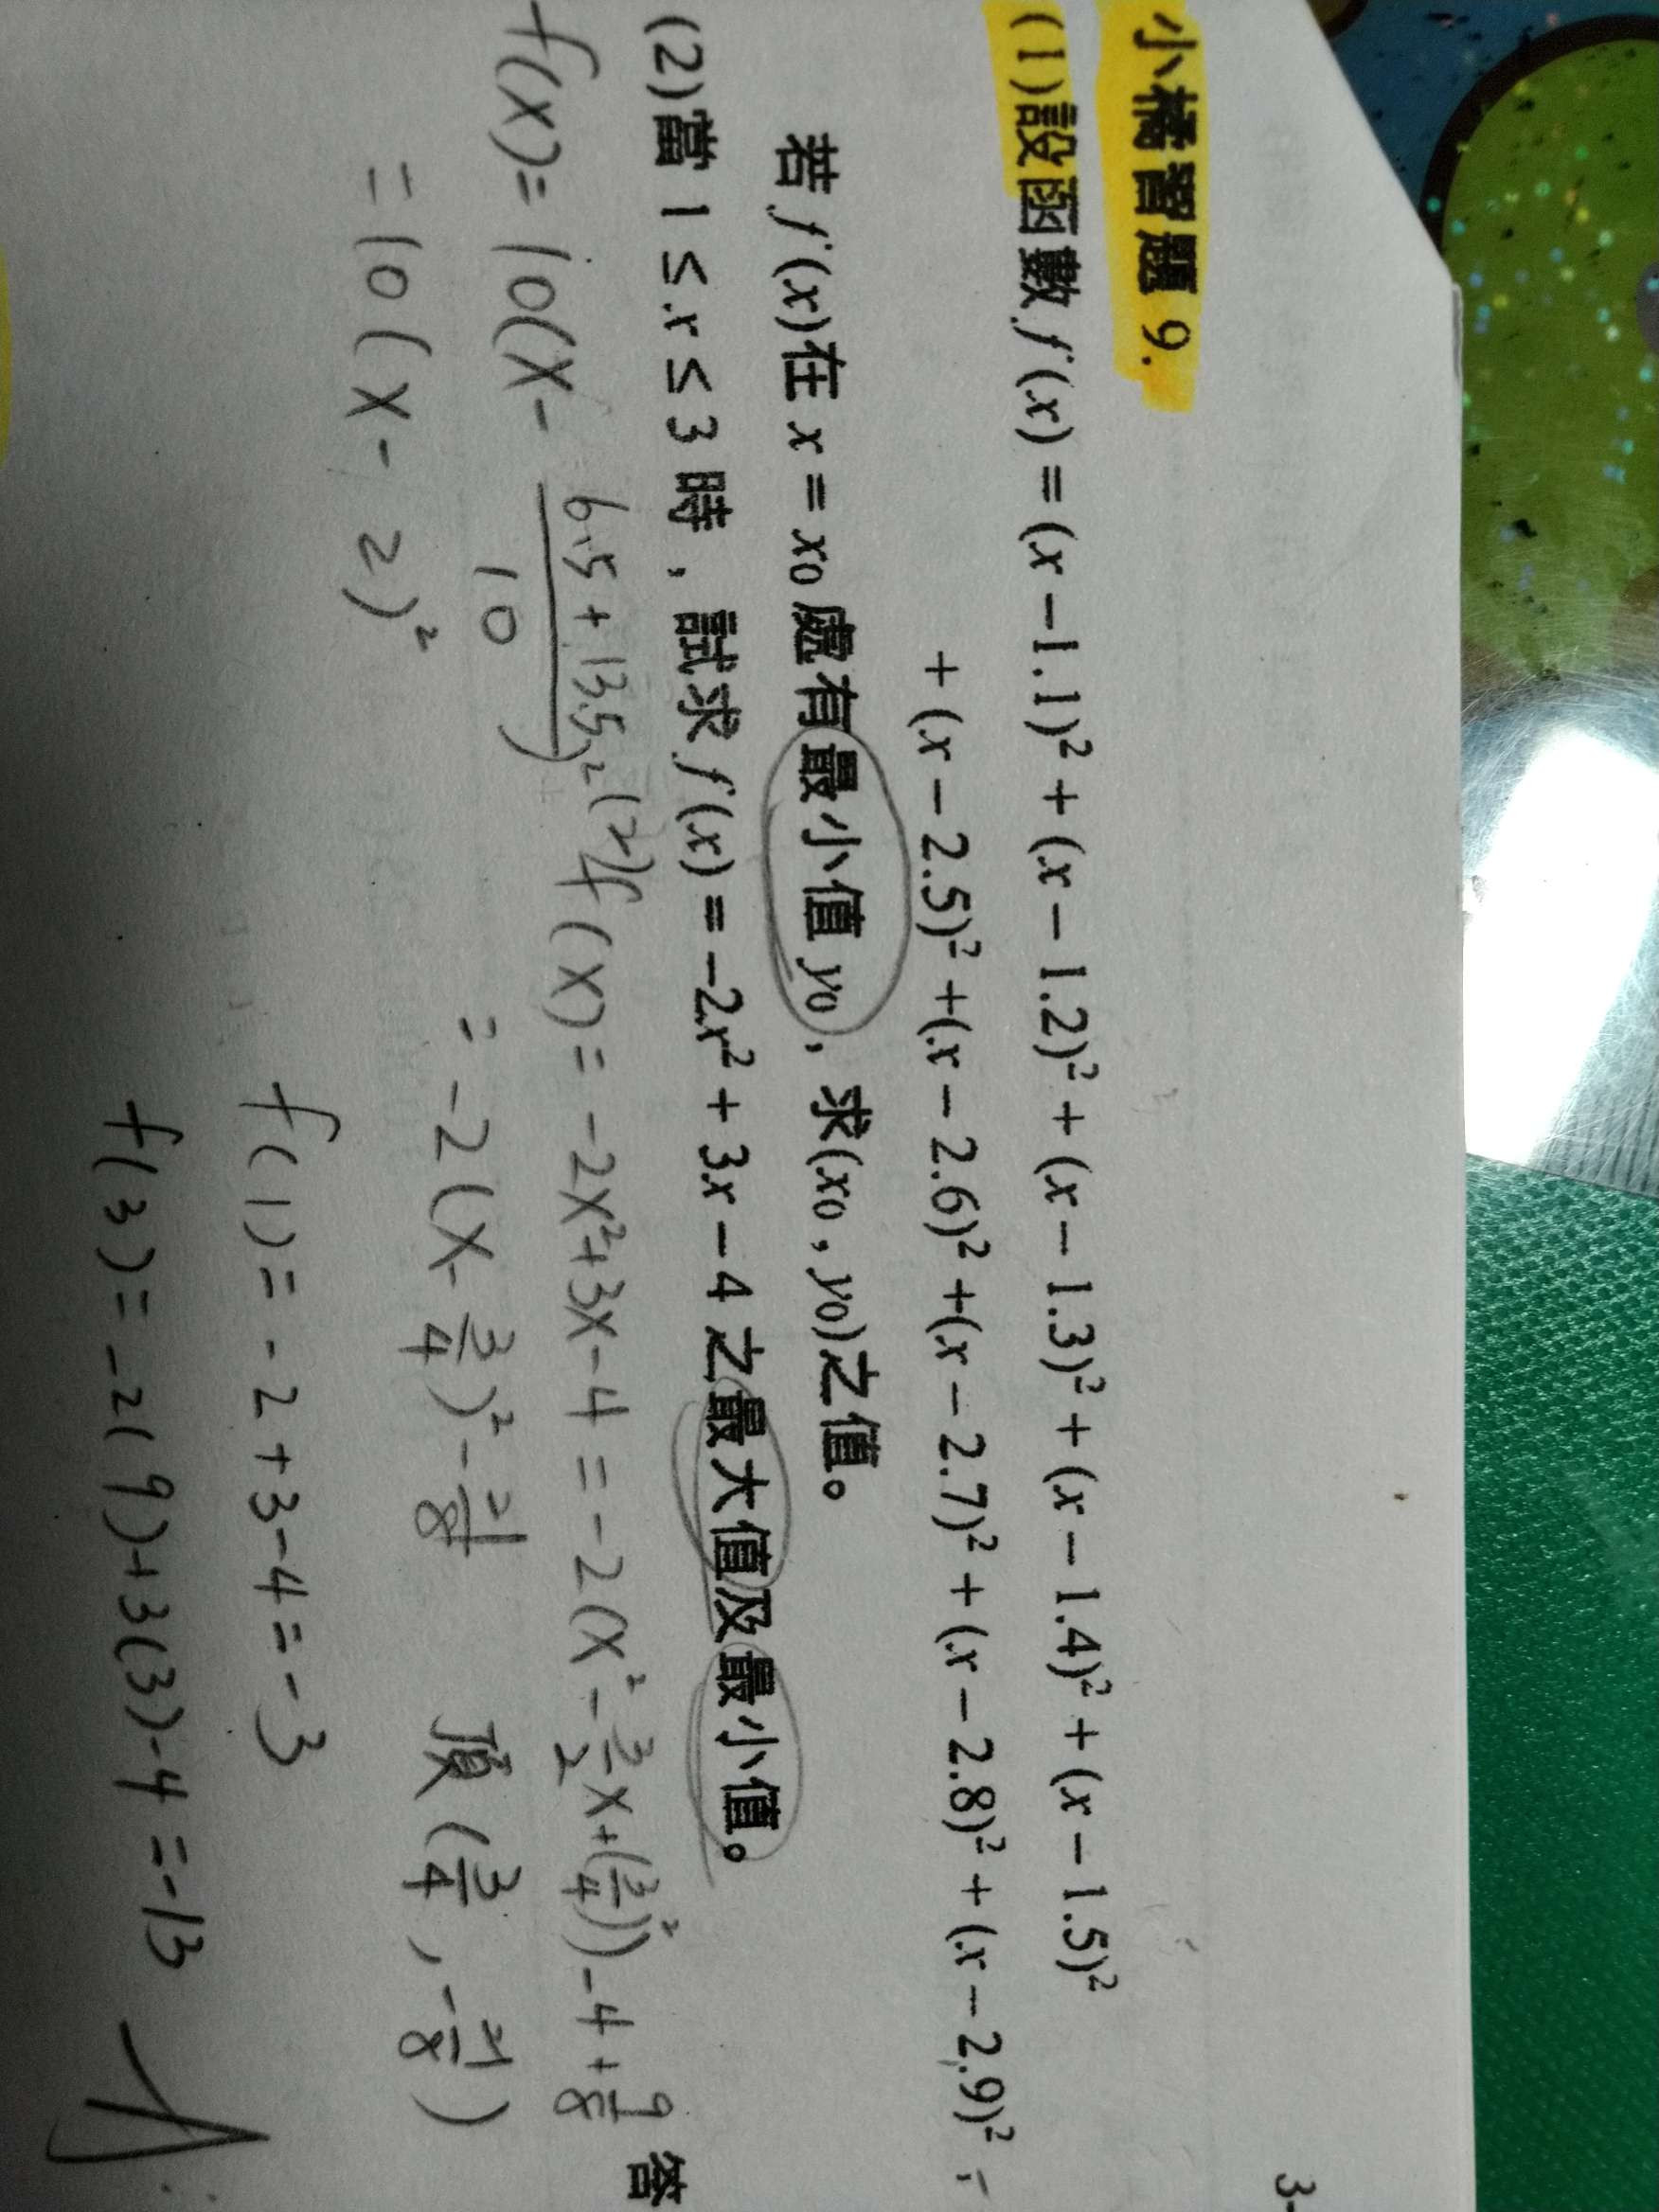 3-
小精習題 9.
(1)設函數 f(x) = (x − 1.1)² + (x − 1.2)² + (x − 1.3)² + (x − 1.4)² + (x − 1.5)²
+ (x − 2.5)² + (x − 2.6)² + (x − 2.7)² + (x − 2.8)² + (x − 2.9)²,
若 f(x)在 x = x₀ 處有最小值 y₀, 求(x₀, y₀)之值。
(2)當 1 ≤ x ≤ 3 時, 試求 f(x) = −2x² + 3x − 4 之最大值及最小值。
答
f(x) = 10(x - (6.5 + 13.5)/10)²
= 10(x - 2)²
(2) f(x) = -2x²+3x-4 = -2(x² - 3/2 x + (3/4)²) - 4 + 9/8
= -2(x - 3/4)² - 21/8 頂(3/4, -21/8)
f(1) = -2+3-4 = -3
f(3) = -2(9)+3(3)-4 = -13